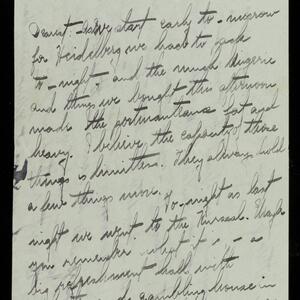 Dearest - As we start early to-morrow
for Heidelberg we had to pack
to-night, and the much lingerie
and things we bought this afternoon
made the portmanteaux fat and
heavy. I believe the capacity of those
things is limitless. They always hold
a few things more. To-night as last
night we went to the Kursaal. Though
you remember it
big refreshment hall with
gambling house in